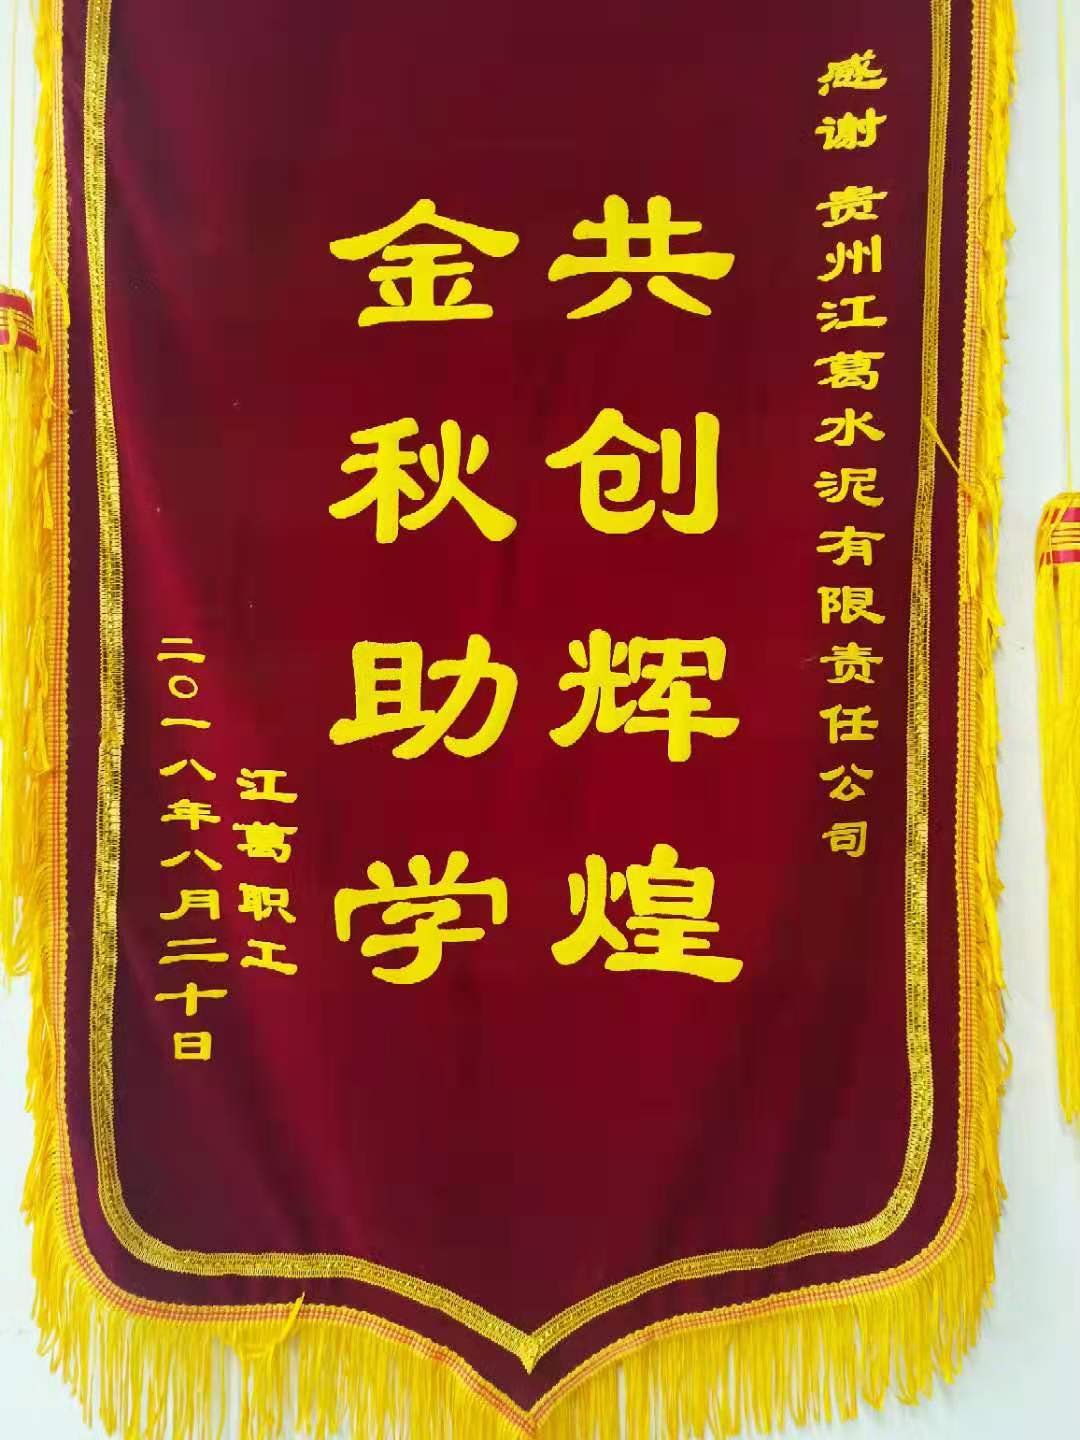 感谢 贵州江葛水泥有限责任公司
共创辉煌
金秋助学
江葛职工
二〇一八年八月二十日